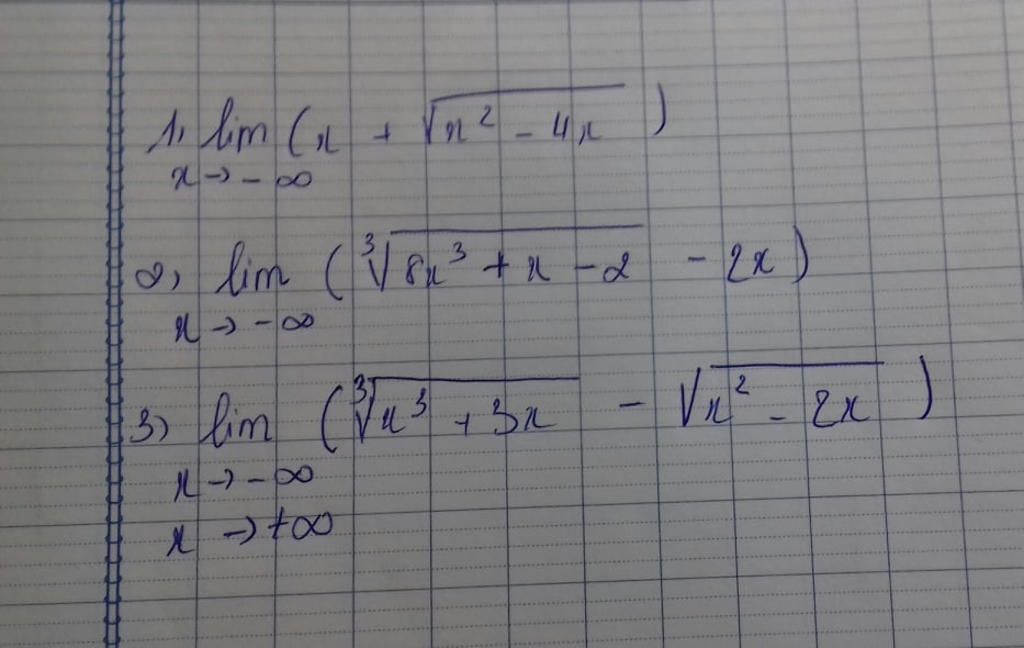 1, lim (x + √(x² - 4x))
x → -∞
2, lim (∛(8x³ + x - 2) - 2x)
x → -∞
3) lim (∛(x³ + 3x) - √(x² - 2x))
x → -∞
x → +∞